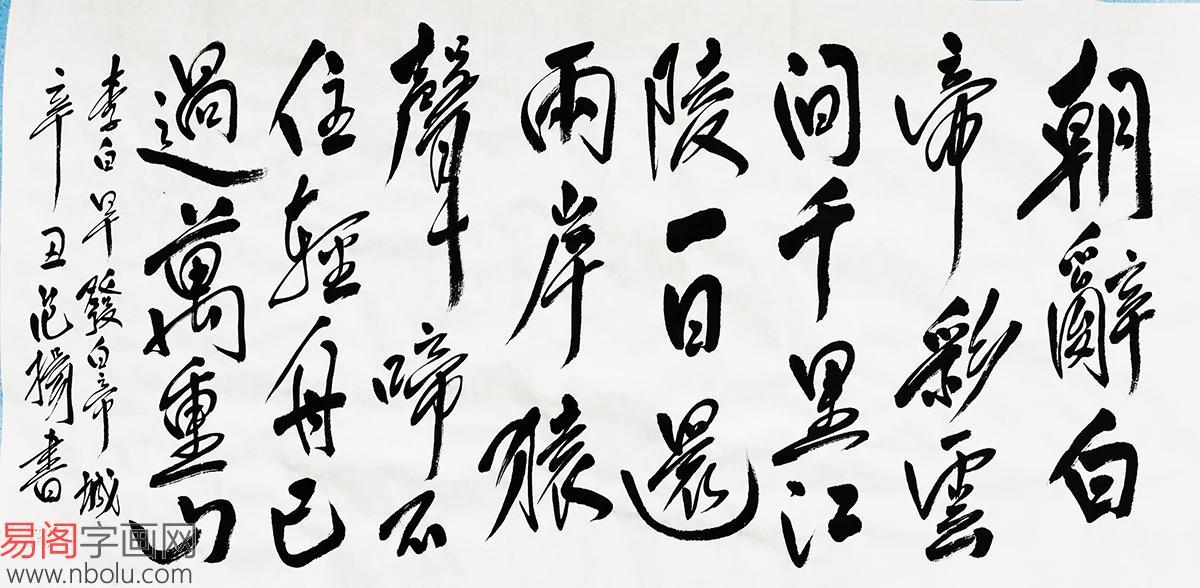 朝辭白
帝彩雲
间千里江
陵一日還
兩岸猿
聲啼不
住輕舟已
過萬重山
李白早發白帝城
辛丑范揚書
易阁字画网
www.nbolu.com